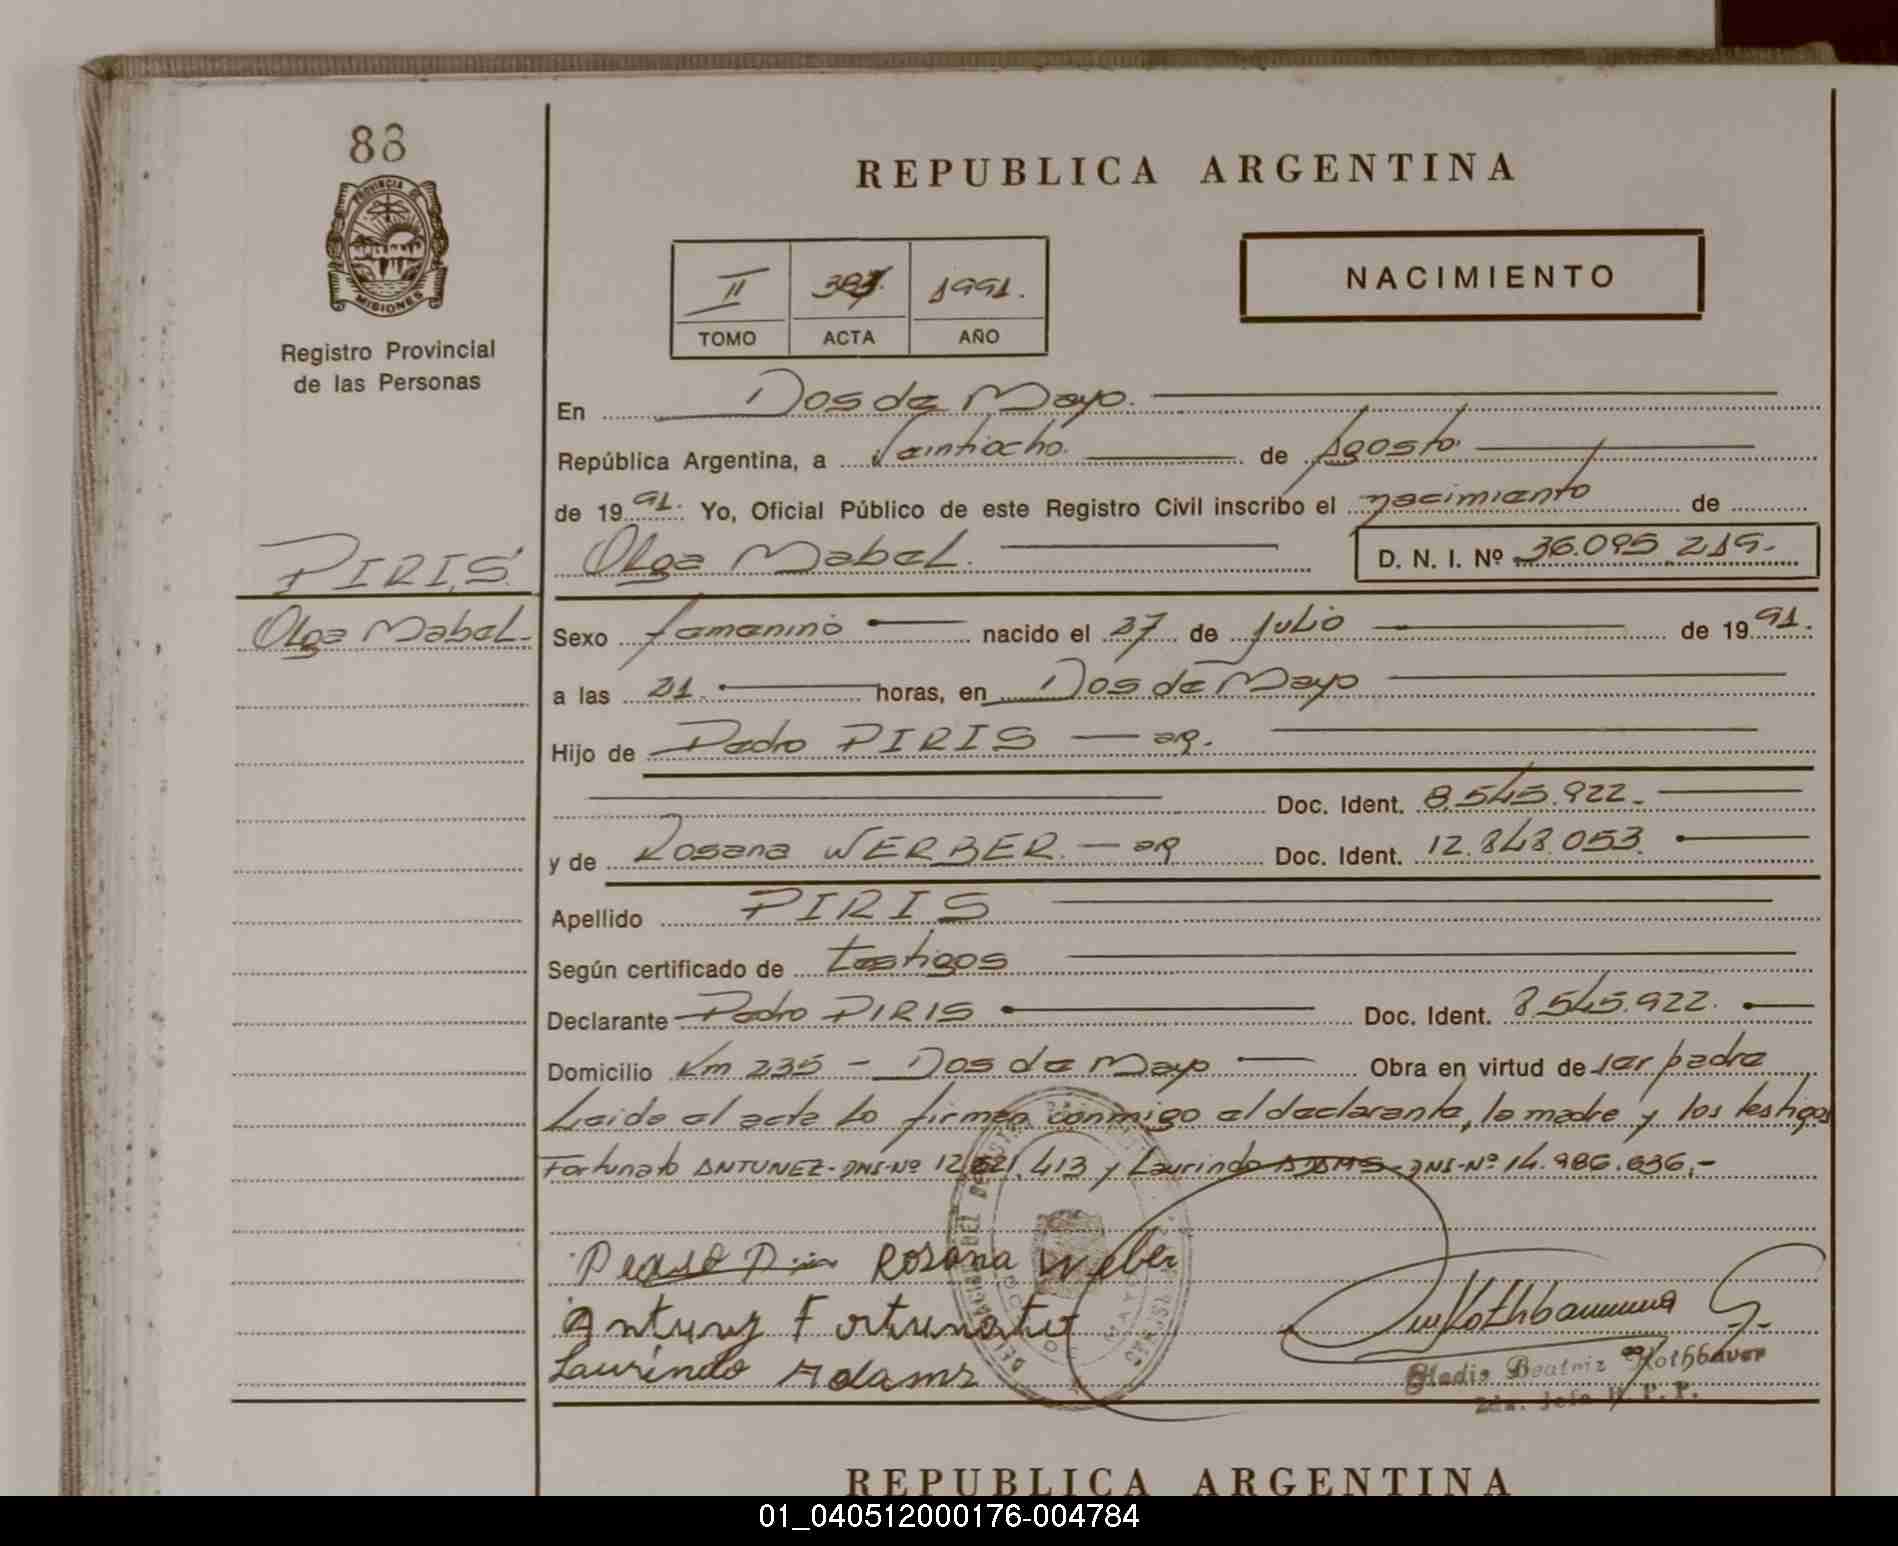 88
PROVINCIA DE
MISIONES
Registro Provincial
de las Personas
REPUBLICA ARGENTINA
NACIMIENTO
II 1991.
TOMO ACTA AÑO
En Dos de Mayo.
República Argentina, a Veintiocho. de Agosto
de 1991. Yo, Oficial Público de este Registro Civil inscribo el nacimiento de
PIRIS
Olga Mabel.
D. N. I. Nº 36.095.219.-
Olga Mabel.-
Sexo femenino nacido el 27 de julio de 1991.
a las 21. horas, en Dos de Mayo
Hijo de Pedro PIRIS — ar.
Doc. Ident. 8.545.922.-
y de Rosana WERBER. — ar Doc. Ident. 12.848.053.
Apellido PIRIS
Según certificado de testigos
Declarante Pedro PIRIS Doc. Ident. 8.545.922.
Domicilio Km 235 - Dos de Mayo Obra en virtud de ser padre
Leida el acta lo firman conmigo el declarante, la madre y los testigos
Fortunato ANTUNEZ- DNI-Nº 12.621.413 y Laurindo ADAMS- DNI-Nº 14.986.636.-
Rosana Weber
Antunz Fortunato
Laurindo Adams
Gladis Beatriz Rothbauer
2da. Jefa R.P.P.
REPUBLICA ARGENTINA
01_040512000176-004784